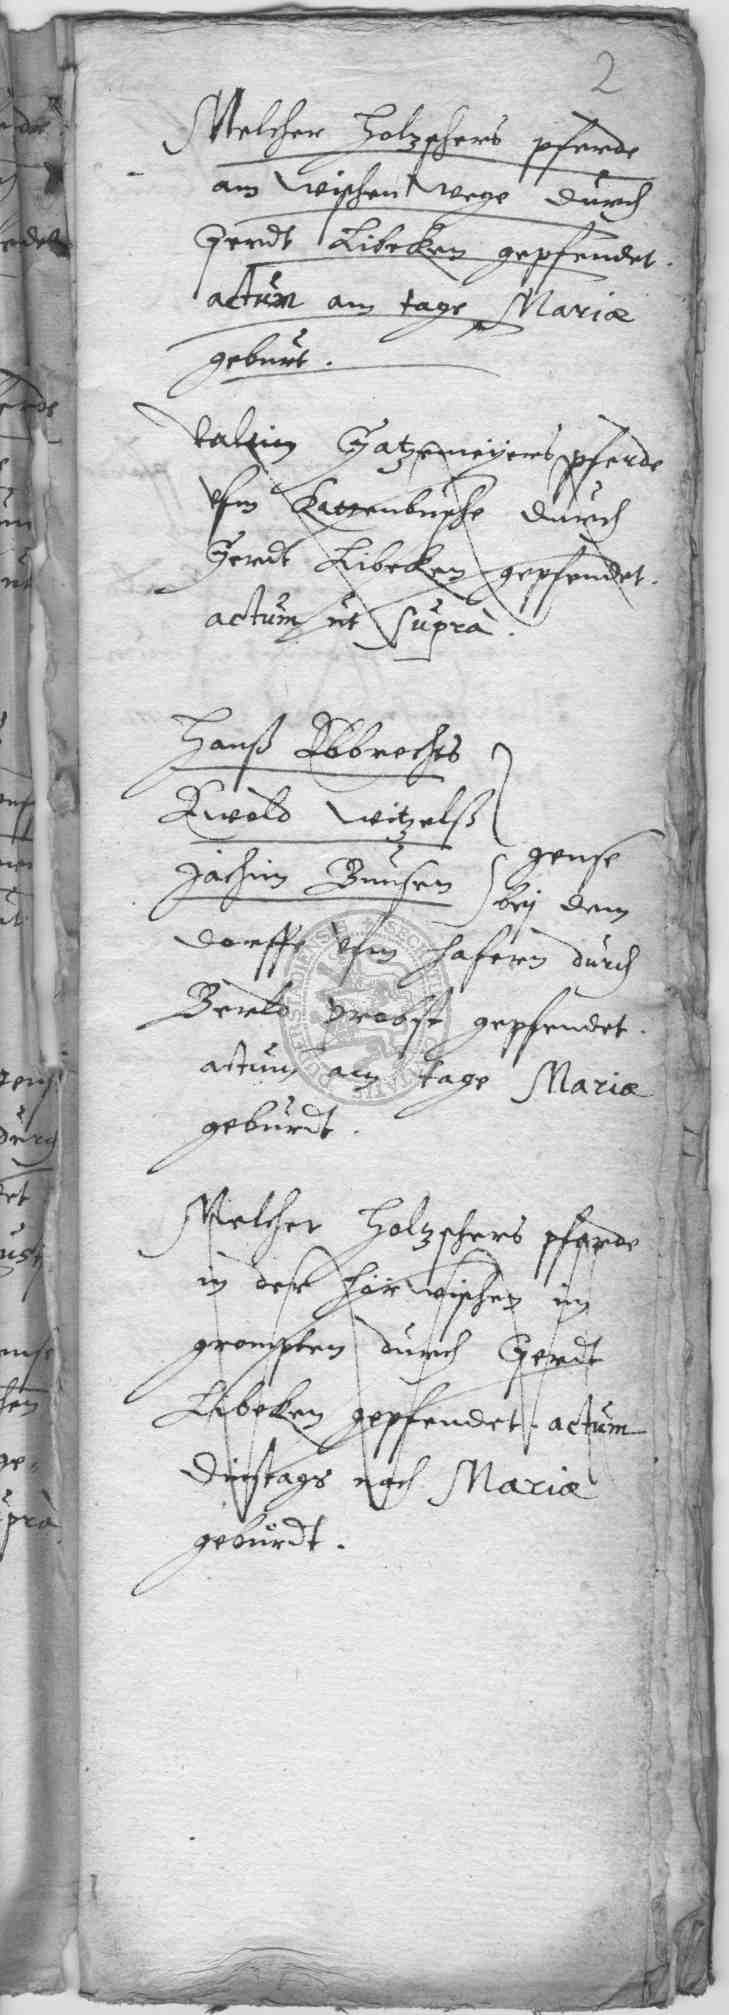 2
Melcher Holzschers pferde
am wischen wege durch
Gerdt Libeken gepfendet.
actum am tage Mariæ
geburt.
Valtin Gatzemeyers pferde
vfm Katzenbusche durch
Gerdt Libeken gepfendet.
actum ut suprà.
Hanß Abbrechts
Ewold Witzelß
Jachim Bunsen gense
beÿ dem
dorffe vfm hafern durch
Berld Probst gepfendet.
actum am tage Mariæ
geburdt.
Melcher Holtzschers pferde
in der wischen im
durch Gerdt
Libeken gepfendet. actum
Dinstags nach Mariæ
geburdt.